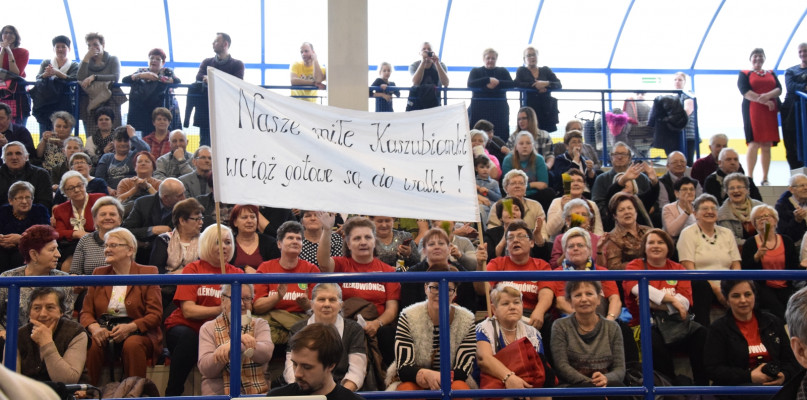 Nasze miłe Kaszubianki
wciąż gotowe są do walki !